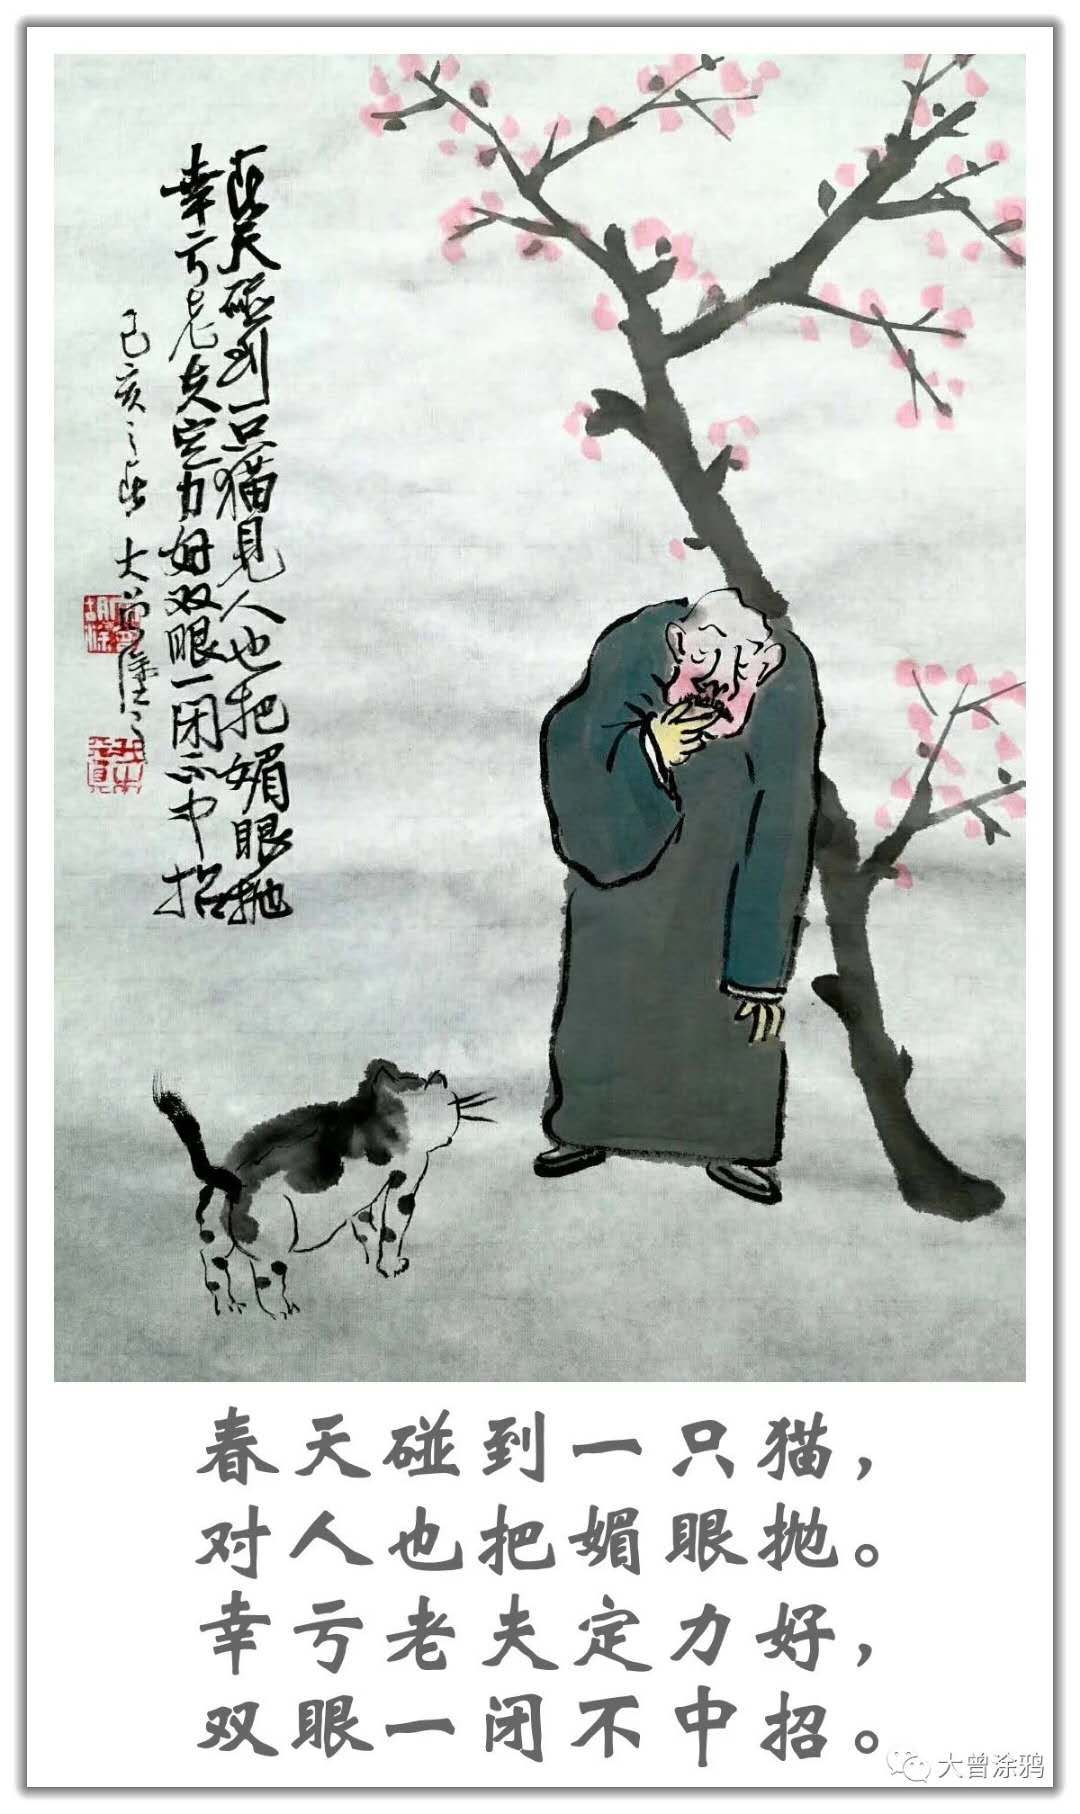 春天碰到一只猫见人也把媚眼抛
幸亏老夫定力好双眼一闭不中招
己亥之春大曾涂之
春天碰到一只猫，
对人也把媚眼抛。
幸亏老夫定力好，
双眼一闭不中招。
大曾涂鸦